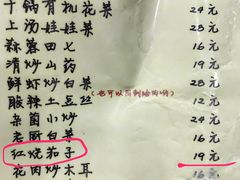 干锅有机花菜 24元
上汤娃娃菜 28元
蒜蓉田七 16元
清炒山药 24元
鲜虾炒白菜 28元
酸辣土豆丝 12元
杂菌小炒 24元
老厨白菜 16元
红烧茄子 19元
花肉炒木耳 16元